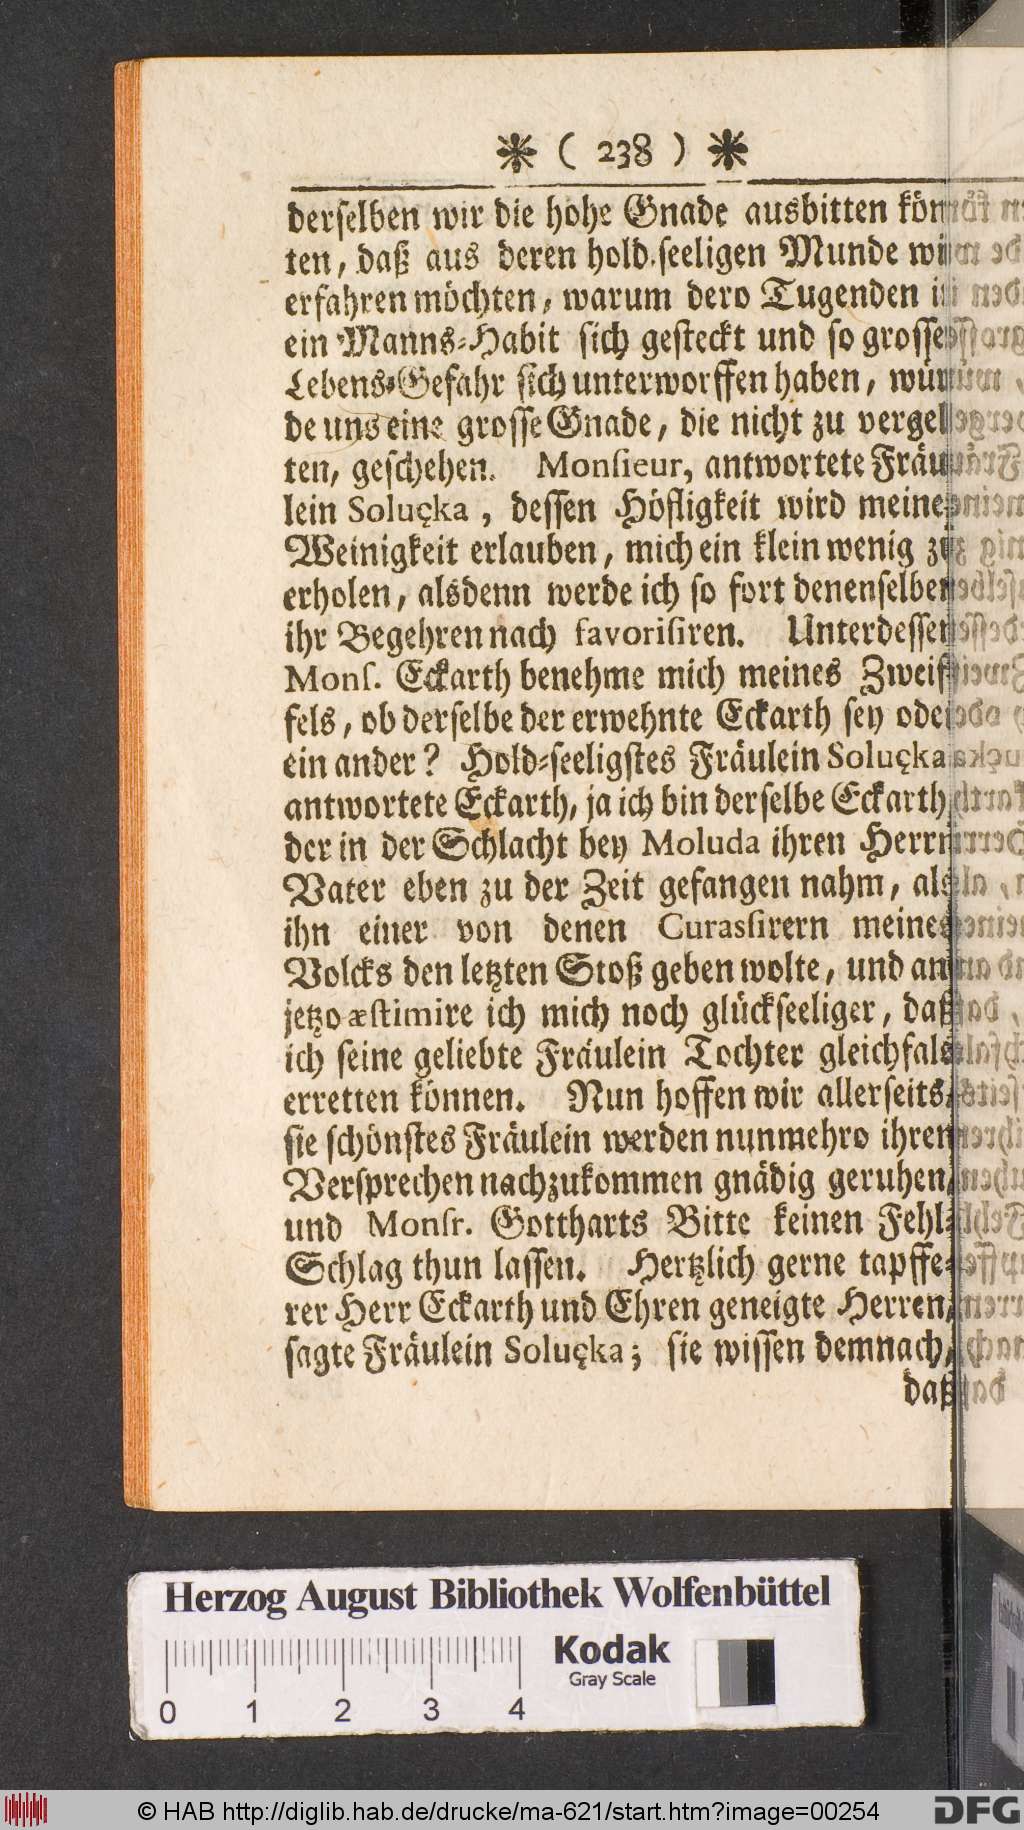 ❋ ( 238 ) ❋
derselben wir die hohe Gnade ausbitten könn-
ten, daß aus deren hold-seeligen Munde wir
erfahren möchten, warum dero Tugenden in
ein Manns-Habit sich gesteckt und so grosse
Lebens-Gefahr sich unterworffen haben, wür-
de uns eine grosse Gnade, die nicht zu vergel-
ten, geschehen. Monsieur, antwortete Fräu-
lein Soluçka, dessen Höfligkeit wird meine
Weinigkeit erlauben, mich ein klein wenig zu
erholen, alsdenn werde ich so fort denenselben
ihr Begehren nach favorisiren. Unterdessen
Mons. Eckarth benehme mich meines Zweif-
fels, ob derselbe der erwehnte Eckarth sey oder
ein ander? Hold-seeligstes Fräulein Soluçka
antwortete Eckarth, ja ich bin derselbe Eckarth,
der in der Schlacht bey Moluda ihren Herrn
Vater eben zu der Zeit gefangen nahm, als
ihn einer von denen Curassirern meines
Volcks den letzten Stoß geben wolte, und an
jetzo æstimire ich mich noch glückseeliger, daß
ich seine geliebte Fräulein Tochter gleichfals
erretten können. Nun hoffen wir allerseits,
sie schönstes Fräulein werden nunmehro ihren
Versprechen nachzukommen gnädig geruhen,
und Monsr. Gottharts Bitte keinen Fehl-
Schlag thun lassen. Hertzlich gerne tapffe-
rer Herr Eckarth und Ehren geneigte Herren,
sagte Fräulein Soluçka; sie wissen demnach,
daß
Herzog August Bibliothek Wolfenbüttel
Kodak
Gray Scale
0 1 2 3 4
© HAB http://diglib.hab.de/drucke/ma-621/start.htm?image=00254
DFG